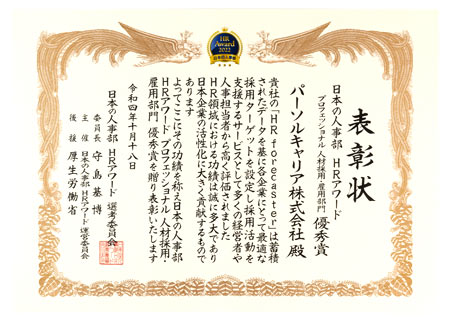 HR
Award
2022
日本の人事部
表彰状
日本の人事部 HRアワード
プロフェッショナル 人材採用・雇用部門 優秀賞
パーソルキャリア株式会社 殿
貴社の「HR forecaster」は蓄積
されたデータを基に各企業にとって最適な
採用ターゲットを設定し採用活動を
支援するサービスとして多くの経営者や
人事担当者から高く評価されました
HR領域における功績は誠に多大であり
日本企業の活性化に大きく貢献するもので
あります
よってここにその功績を称え日本の人事部
HRアワード プロフェッショナル 人材採用・
雇用部門 優秀賞を贈り表彰いたします
令和四年十月十八日
日本の人事部 HRアワード 選考委員会
委員長 守島基博
主催 日本の人事部「HRアワード」運営委員会
後援 厚生労働省